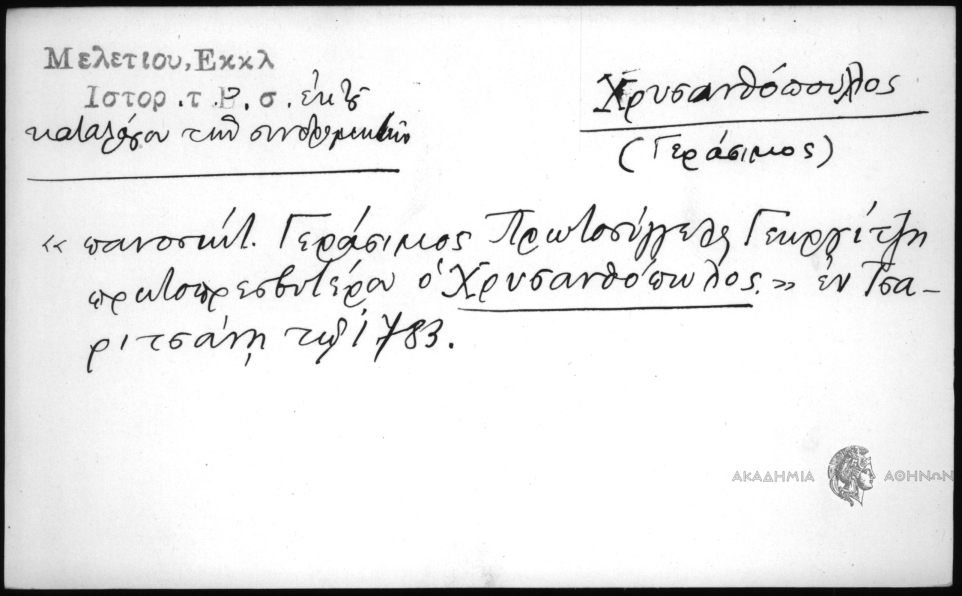 Μελετίου, Εκκλ
Ιστορ. τ. σ. ἐκ τ
καταλόγου τῶν συνδρομητῶν
Χρυσανθόπουλος
(Γεράσιμος)
« πανοσιώτ. Γεράσιμος Πρωτοσύγγελος Γεωργίτζη
πρωτοπρεσβυτέρου ὁ Χρυσανθόπουλος.» ἐν Τσα-
ριτσάνῃ τῷ 1783.
ΑΚΑΔΗΜΙΑ ΑΘΗΝΩΝ